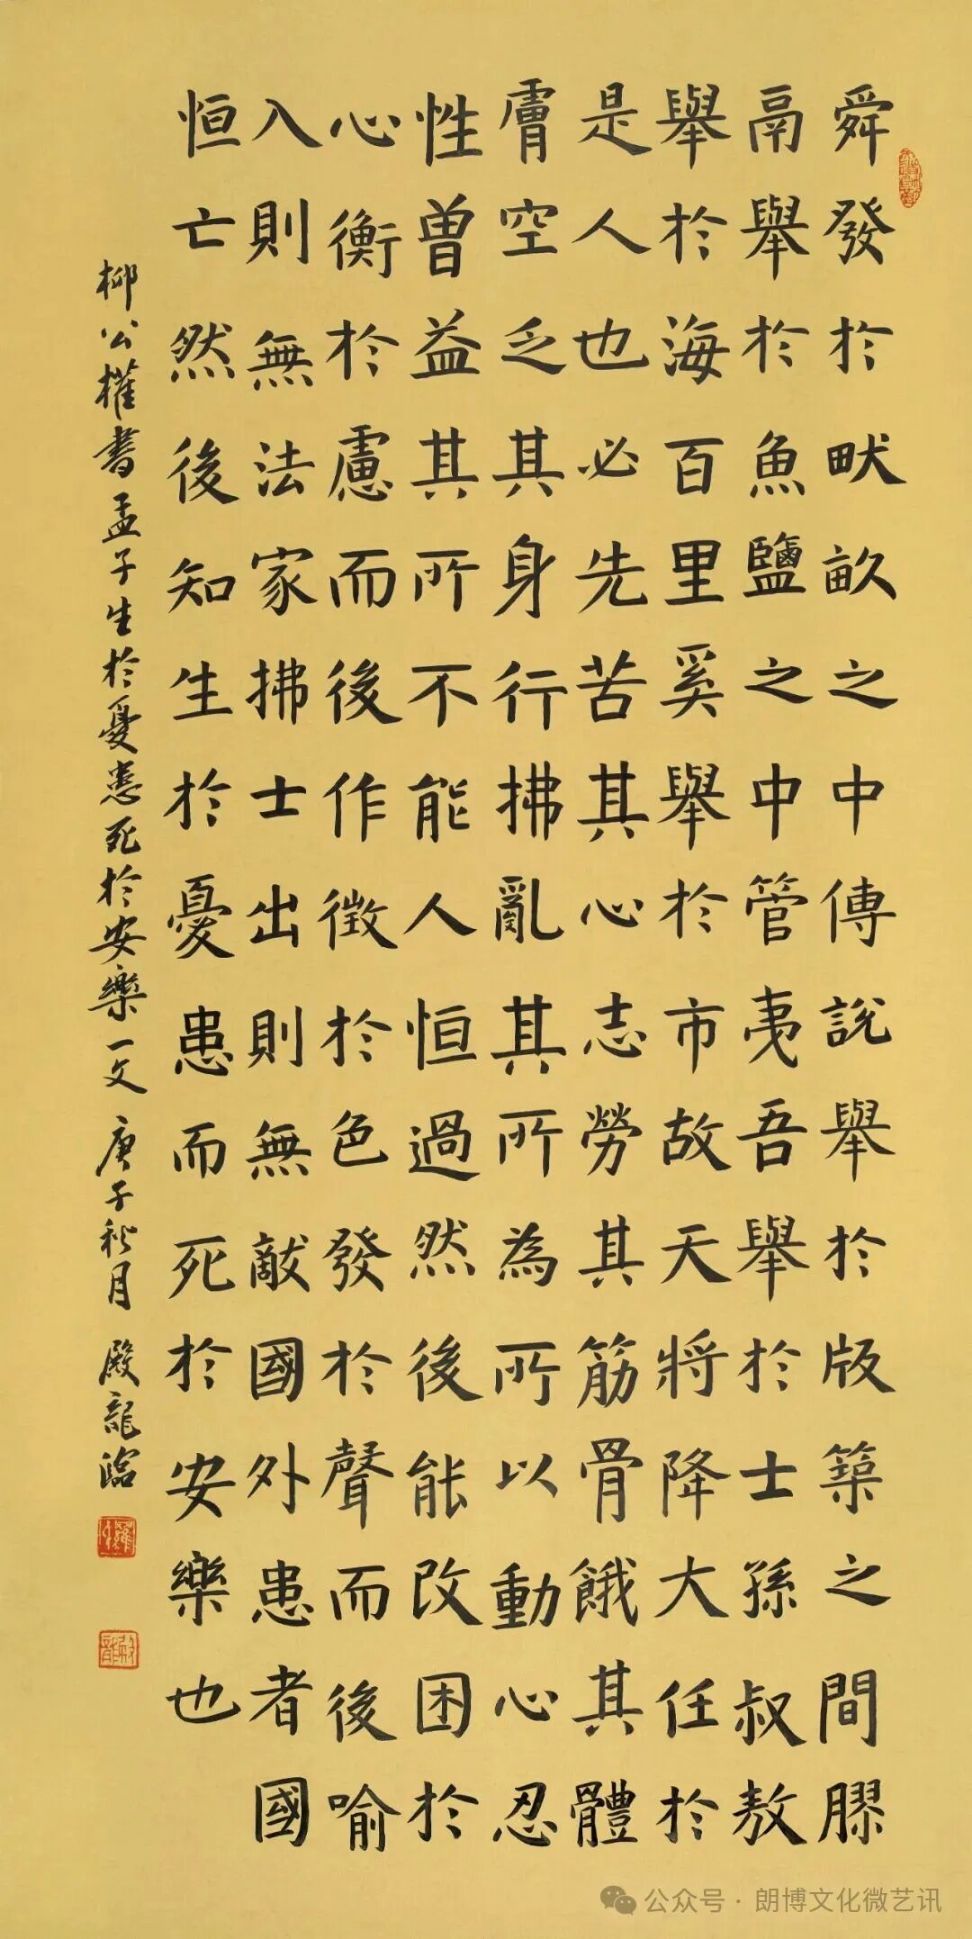 舜發於畎畝之中傳說舉於版築之間膠
鬲舉於魚鹽之中管夷吾舉於士孫叔敖
舉於海百里奚舉於市故天將降大任於
是人也必先苦其心志勞其筋骨餓其體
膚空乏其身行拂亂其所為所以動心忍
性曾益其所不能人恒過然後能改困於
心衡於慮而後作徵於色發於聲而後喻
入則無法家拂士出則無敵國外患者國
恒亡然後知生於憂患而死於安樂也
柳公權書孟子生於憂患死於安樂一文 庚子秋月 殿龍臨
公众号 · 朗博文化微艺讯